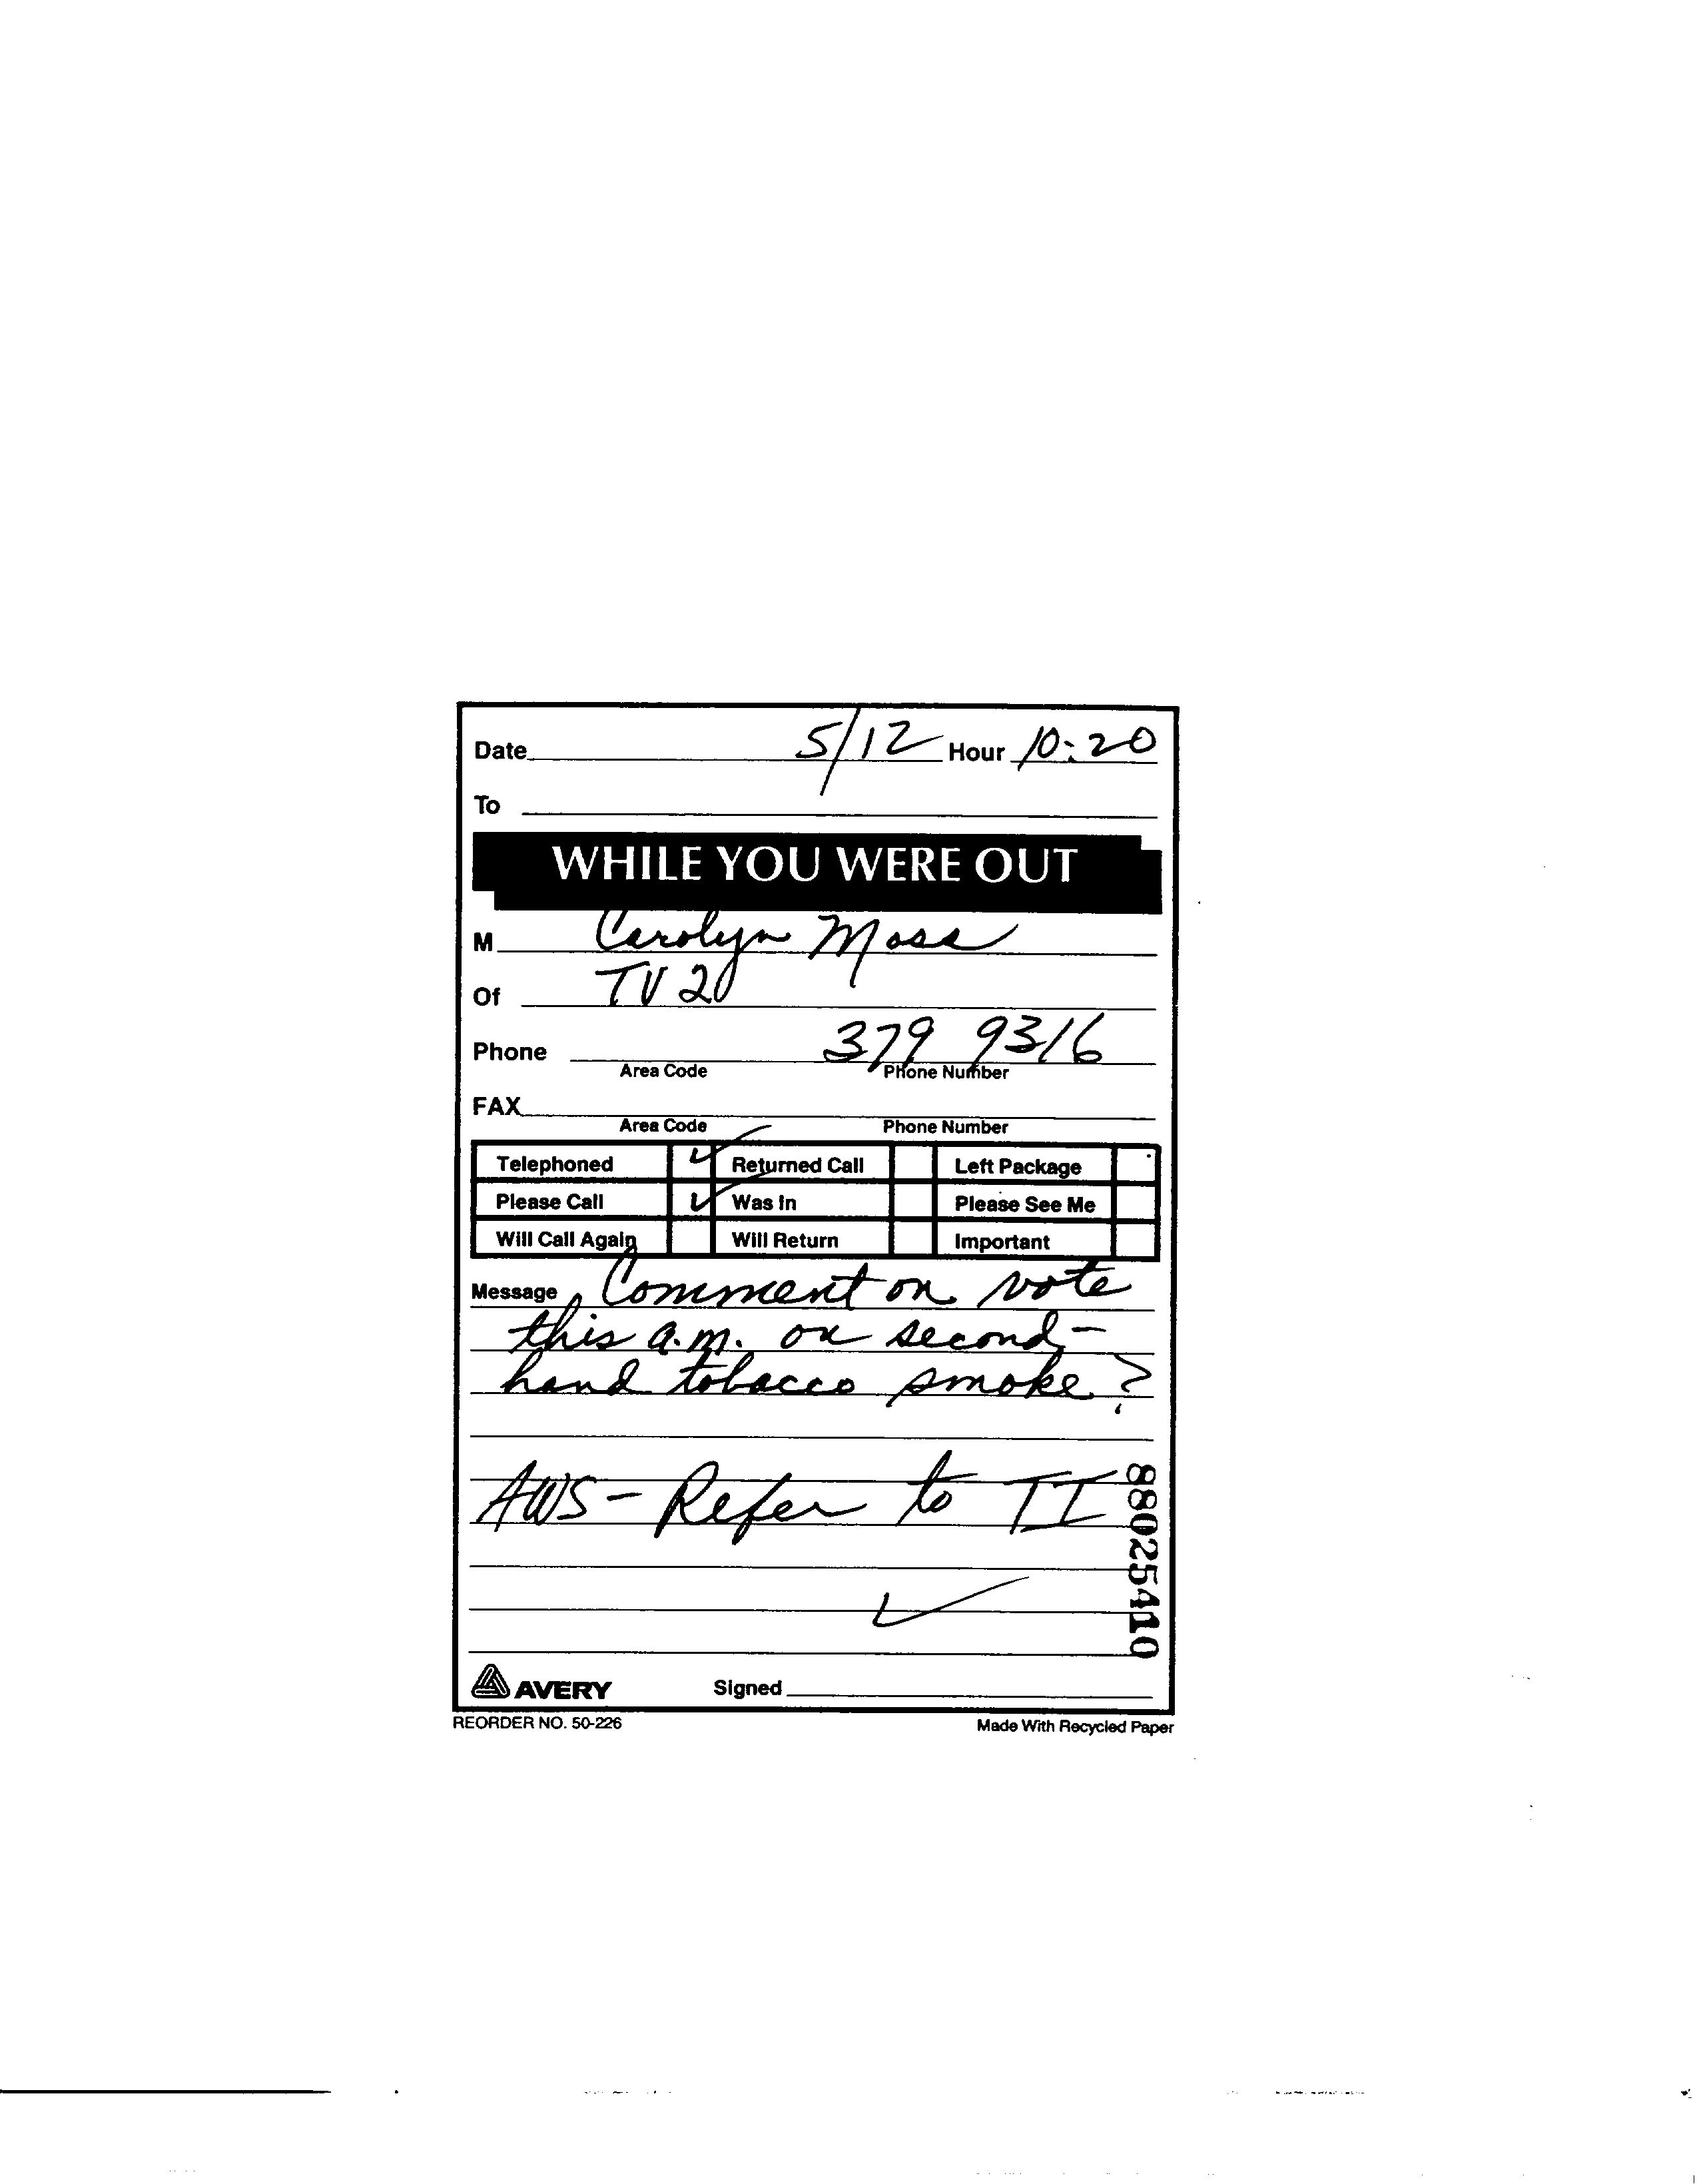 Date 5/12 Hour 10:20
To
WHILE YOU WERE OUT
M Carolyn Moss
Of TV 20
Phone 379 9316
Area Code Phone Number
FAX
Area Code Phone Number
Telephoned ✓ Returned Call Left Package
Please Call ✓ Was In Please See Me
Will Call Again Will Return Important
Message Comment on vote
this a.m. on second-
hand tobacco smoke?
AWS - Refer to TI
✓
88025410
AVERY Signed
REORDER NO. 50-226 Made With Recycled Paper